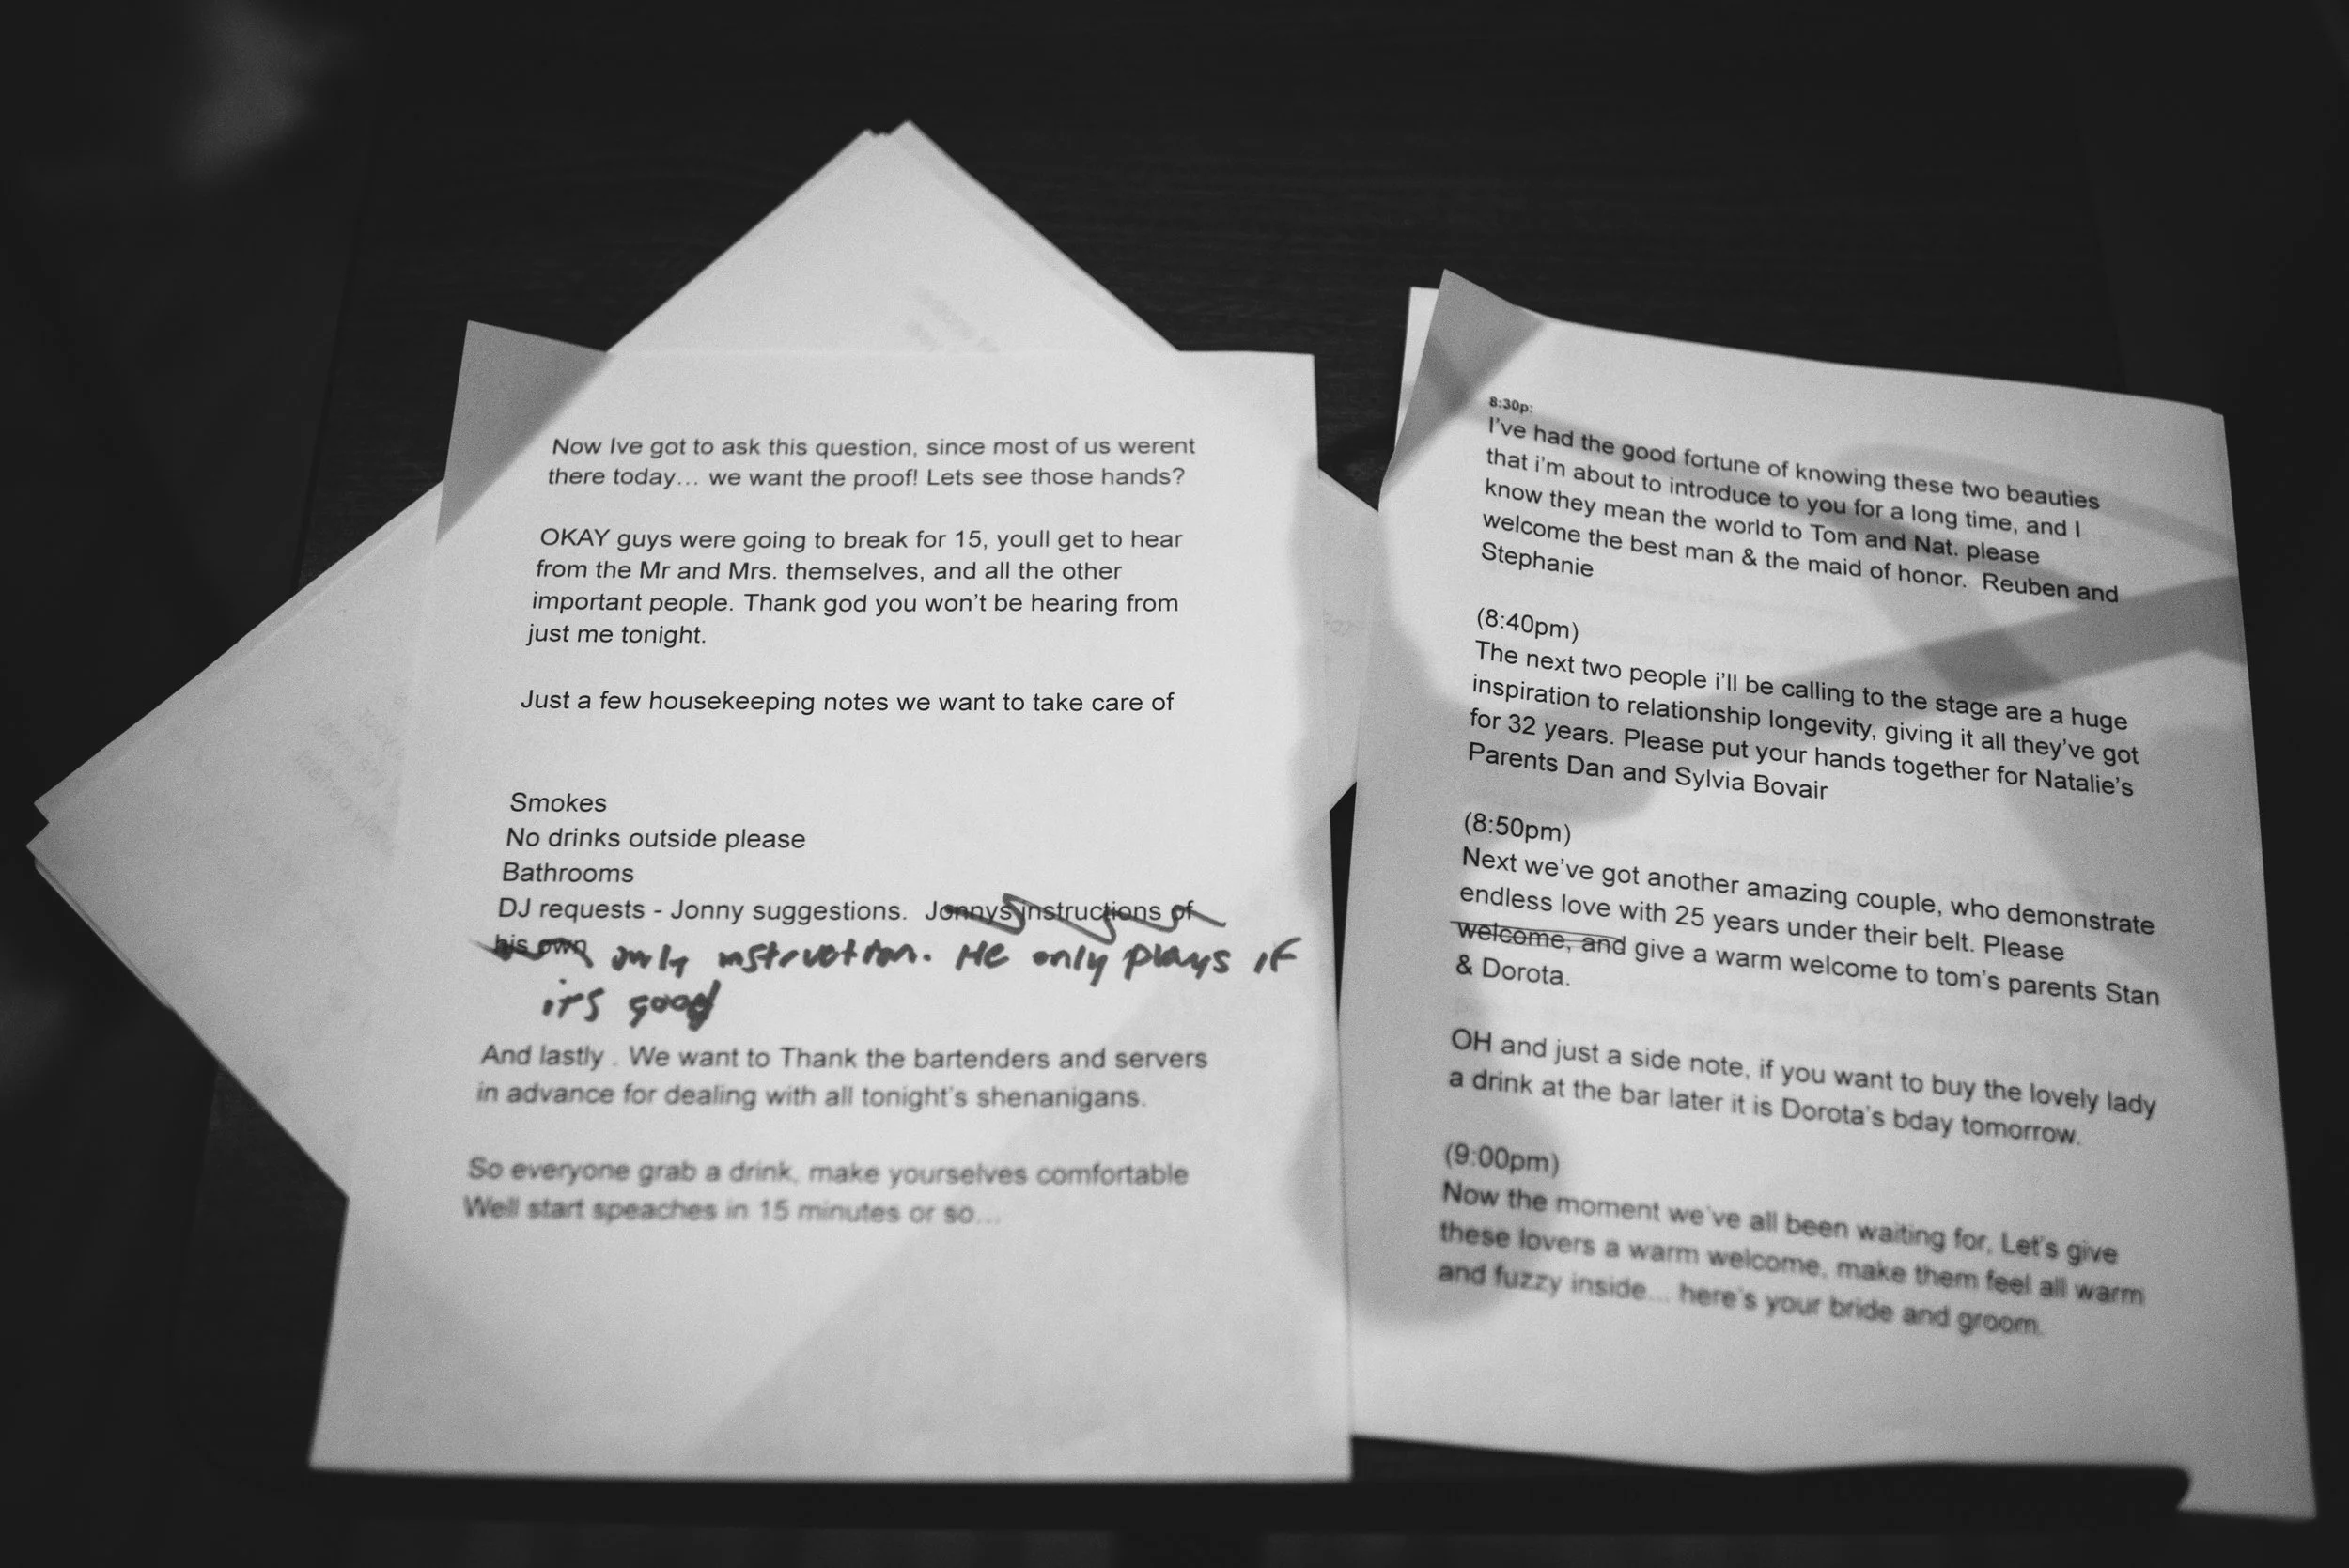 Now Ive got to ask this question, since most of us werent
there today... we want the proof! Lets see those hands?
OKAY guys were going to break for 15, youll get to hear
from the Mr and Mrs. themselves, and all the other
important people. Thank god you won't be hearing from
just me tonight.
Just a few housekeeping notes we want to take care of
Smokes
No drinks outside please
Bathrooms
DJ requests - Jonny suggestions. Jonnys instructions of
his own only instruction. He only plays if
it's good
And lastly . We want to Thank the bartenders and servers
in advance for dealing with all tonight's shenanigans.
So everyone grab a drink, make yourselves comfortable
Well start speaches in 15 minutes or so...
8:30p:
I've had the good fortune of knowing these two beauties
that i'm about to introduce to you for a long time, and I
know they mean the world to Tom and Nat. please
welcome the best man & the maid of honor. Reuben and
Stephanie
(8:40pm)
The next two people i'll be calling to the stage are a huge
inspiration to relationship longevity, giving it all they've got
for 32 years. Please put your hands together for Natalie's
Parents Dan and Sylvia Bovair
(8:50pm)
Next we've got another amazing couple, who demonstrate
endless love with 25 years under their belt. Please
welcome, and give a warm welcome to tom's parents Stan
& Dorota.
OH and just a side note, if you want to buy the lovely lady
a drink at the bar later it is Dorota's bday tomorrow.
(9:00pm)
Now the moment we've all been waiting for, Let's give
these lovers a warm welcome, make them feel all warm
and fuzzy inside... here's your bride and groom.